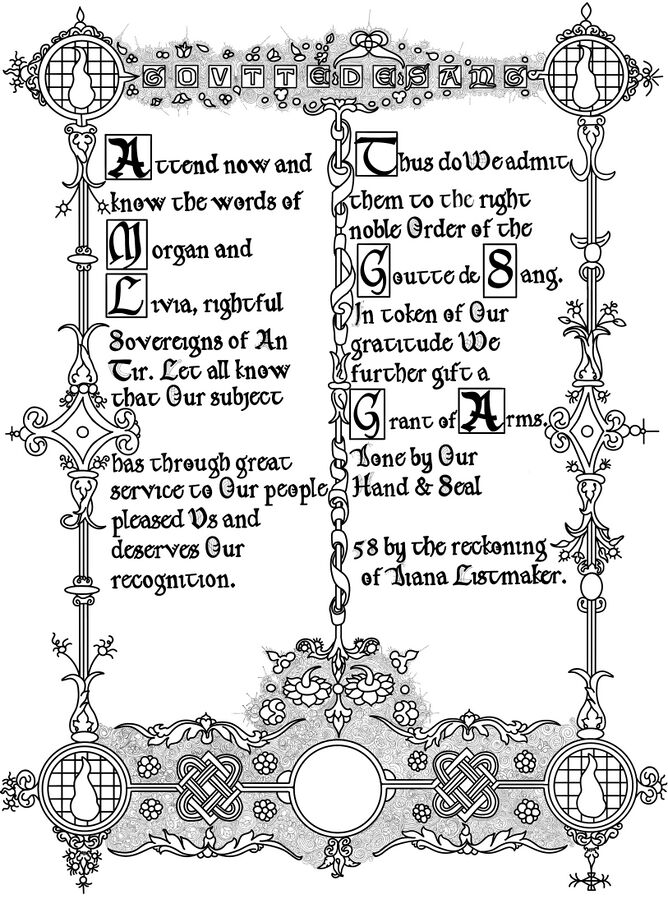 GOVTTE:DE:SANG
Attend now and
know the words of
Morgan and
Livia, rightful
Sovereigns of An
Tir. Let all know
that Our subject
has through great
service to Our people
pleased Us and
deserves Our
recognition.
Thus do We admit
them to the right
noble Order of the
Goutte de Sang.
In token of Our
gratitude We
further gift a
Grant of Arms.
Done by Our
Hand & Seal
58 by the reckoning
of Diana Listmaker.